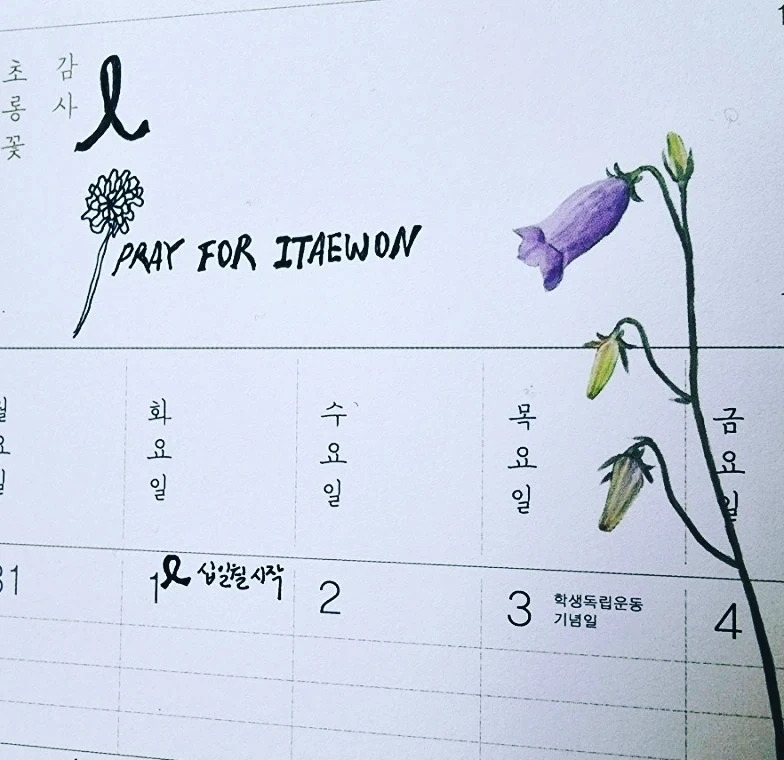 초롱꽃
감사
PRAY FOR ITAEWON
화요일
수요일
목요일
금요일
31
1 십일월 시작
2
3 학생독립운동
기념일
4